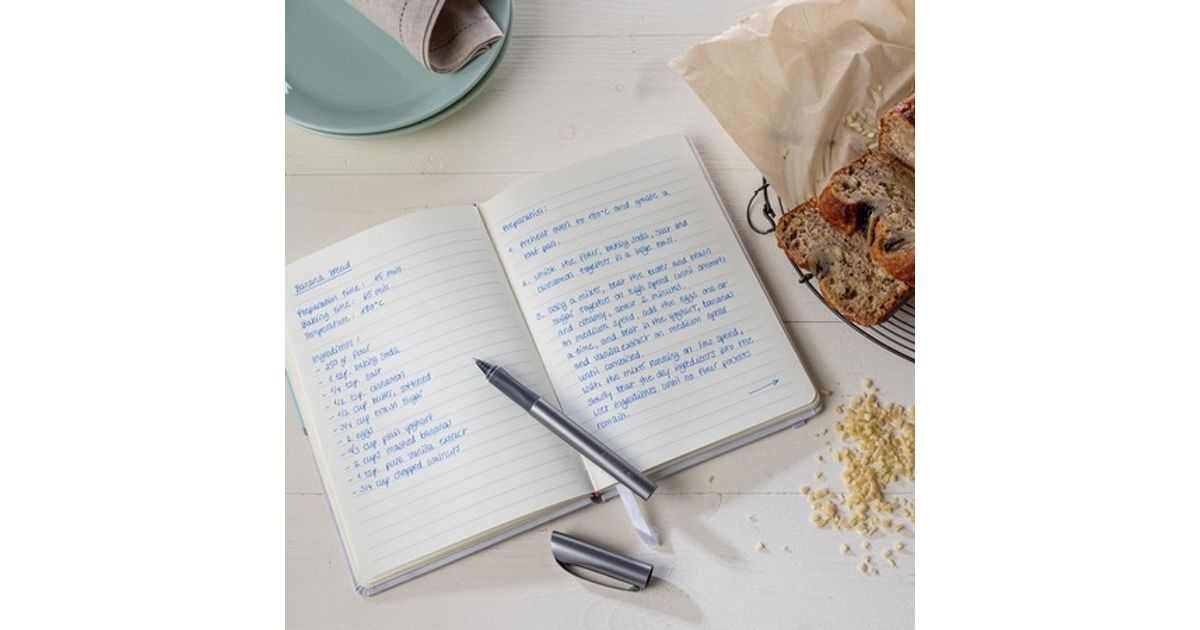 Banana bread
Preparation time: 15 min.
Baking time: 65 min.
Temperature: 180°C
Ingredients:
- 250 gr. flour
- 1 tsp. baking soda
- 1/4 tsp. salt
- 1/2 tsp. cinnamon
- 1/2 cup butter, softened
- 3/4 cup brown sugar
- 2 eggs
- 1/3 cup plain yoghurt
- 2 cups mashed bananas
- 1 tsp. pure vanilla extract
- 3/4 cup chopped walnuts
Preparation:
1. Preheat oven to 180°C and grease a
loaf pan.
2. Whisk the flour, baking soda, salt and
cinnamon together in a large bowl.
3. Using a mixer, beat the butter and brown
sugar together on high speed until smooth
and creamy, about 2 minutes.
on medium speed, add the eggs one at
a time, and beat in the yoghurt, bananas
and vanilla extract on medium speed
until combined.
With the mixer running on low speed,
slowly beat the dry ingredients into the
wet ingredients until no flour pockets
remain.